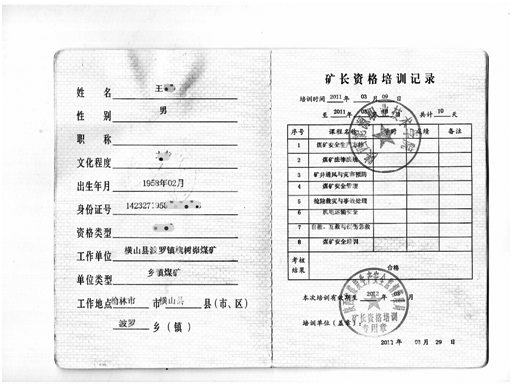 姓名 王
性别 男
职称
文化程度
出生年月 1958年02月
身份证号 142327195
资格类型
工作单位 横山县波罗镇樊河峁煤矿
单位类型 乡镇煤矿
工作地点 榆林市 市 横山 县(市、区)
波罗 乡(镇)
矿长资格培训记录
培训时间 2011年 03月 09日
至 2011年 03月 日 共计 10 天
序号 课程名称 学时 成绩 备注
1 煤矿安全生产
2 煤矿法律法规
3 矿井通风与灾害预防
4 煤矿安全管理
5 抢险救灾与事故处理
6 机电运输安全
7 自救、互救与创伤急救
8 煤矿安全培训
考核结果 合格
本次培训有效期至 2012年 03月
培训单位(盖章)
矿长资格培训
专用章
2011年 03月 29日